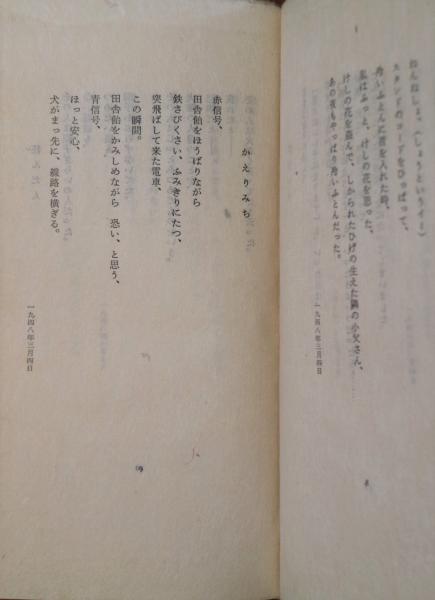 ねんねしょ、(しょうというイミ)
スタンドのコードをひっぱって、
冷いふとんに首を入れた時、
私はふっと、けしの花を思った。
けしの花を盗んで、しかられたひげの生えた隣の小父さん、
あの夜もやっぱり冷いふとんだった。
一九四八年三月四日
かえりみち
赤信号、
田舎飴をほうばりながら
鉄さびくさい、ふみきりにたつ、
突飛ばして来た電車、
この瞬間。
田舎飴をかみしめながら 恐い、と思う、
青信号、
ほっと安心、
犬がまっ先に、線路を横ぎる。
一九四八年三月四日